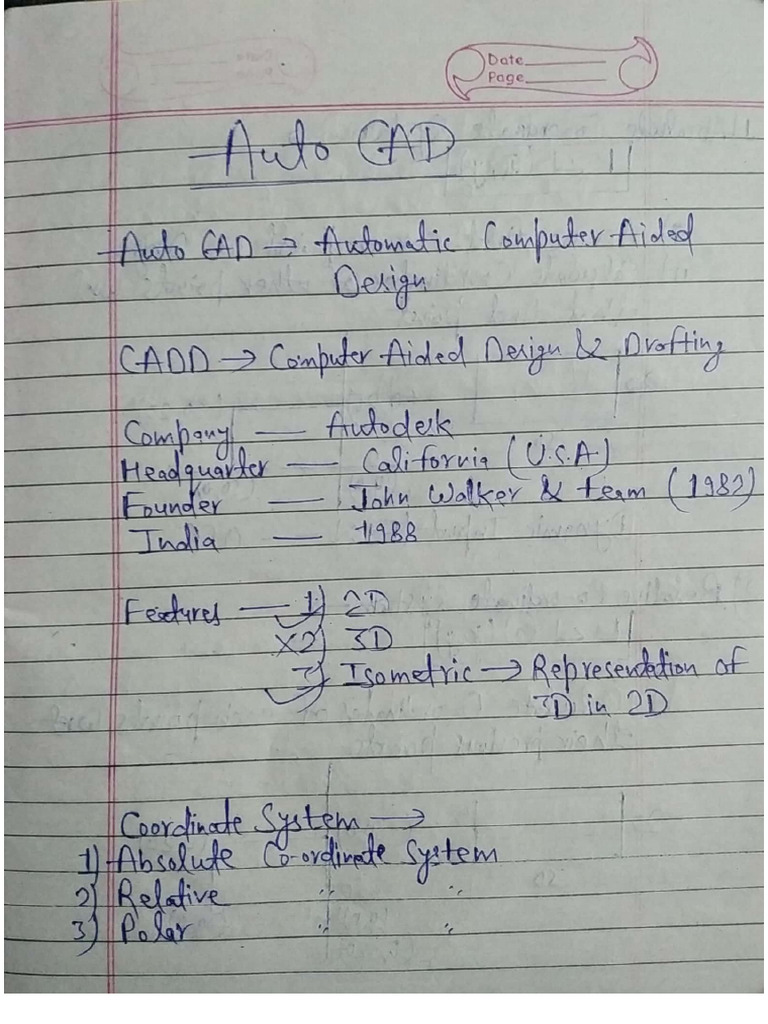 Date
Page
Auto CAD
Auto CAD → Automatic Computer Aided
Design
CADD → Computer Aided Design & Drafting
Company — Autodesk
Headquarter — California (U.S.A)
Founder — John Walker & team (1982)
India — 1988
Features — 1) 2D
X2) 3D
3) Isometric → Representation of
3D in 2D
Coordinate System →
1) Absolute Co-ordinate System
2) Relative " "
3) Polar " "